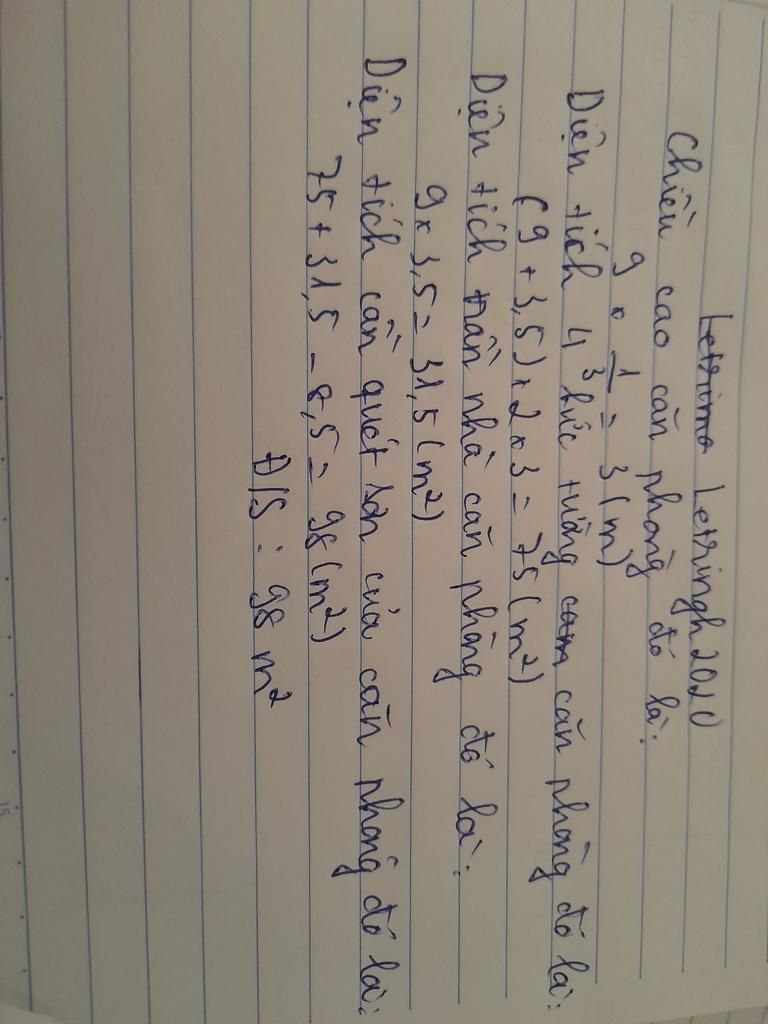 Letrima Letringh2020
Chiều cao căn phòng đó là:
9 x 1/3 = 3 (m)
Diện tích 4 bức tường cam căn phòng đó là:
(9 + 3,5) x 2 x 3 = 75 (m²)
Diện tích trần nhà căn phòng đó là:
9 x 3,5 = 31,5 (m²)
Diện tích cần quét sơn của căn phòng đó là:
75 + 31,5 - 8,5 = 98 (m²)
Đ/S : 98 m²